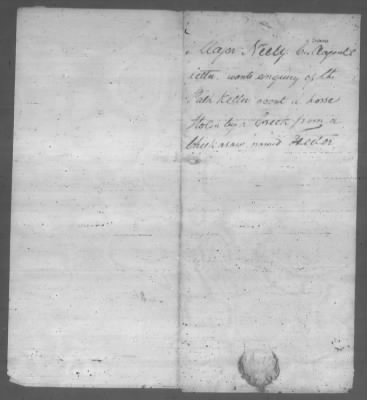 Major Neely
letter wants enquiry of the
Path Keller about a horse
Stolen by a Creek from a
Chickasaw named Hector